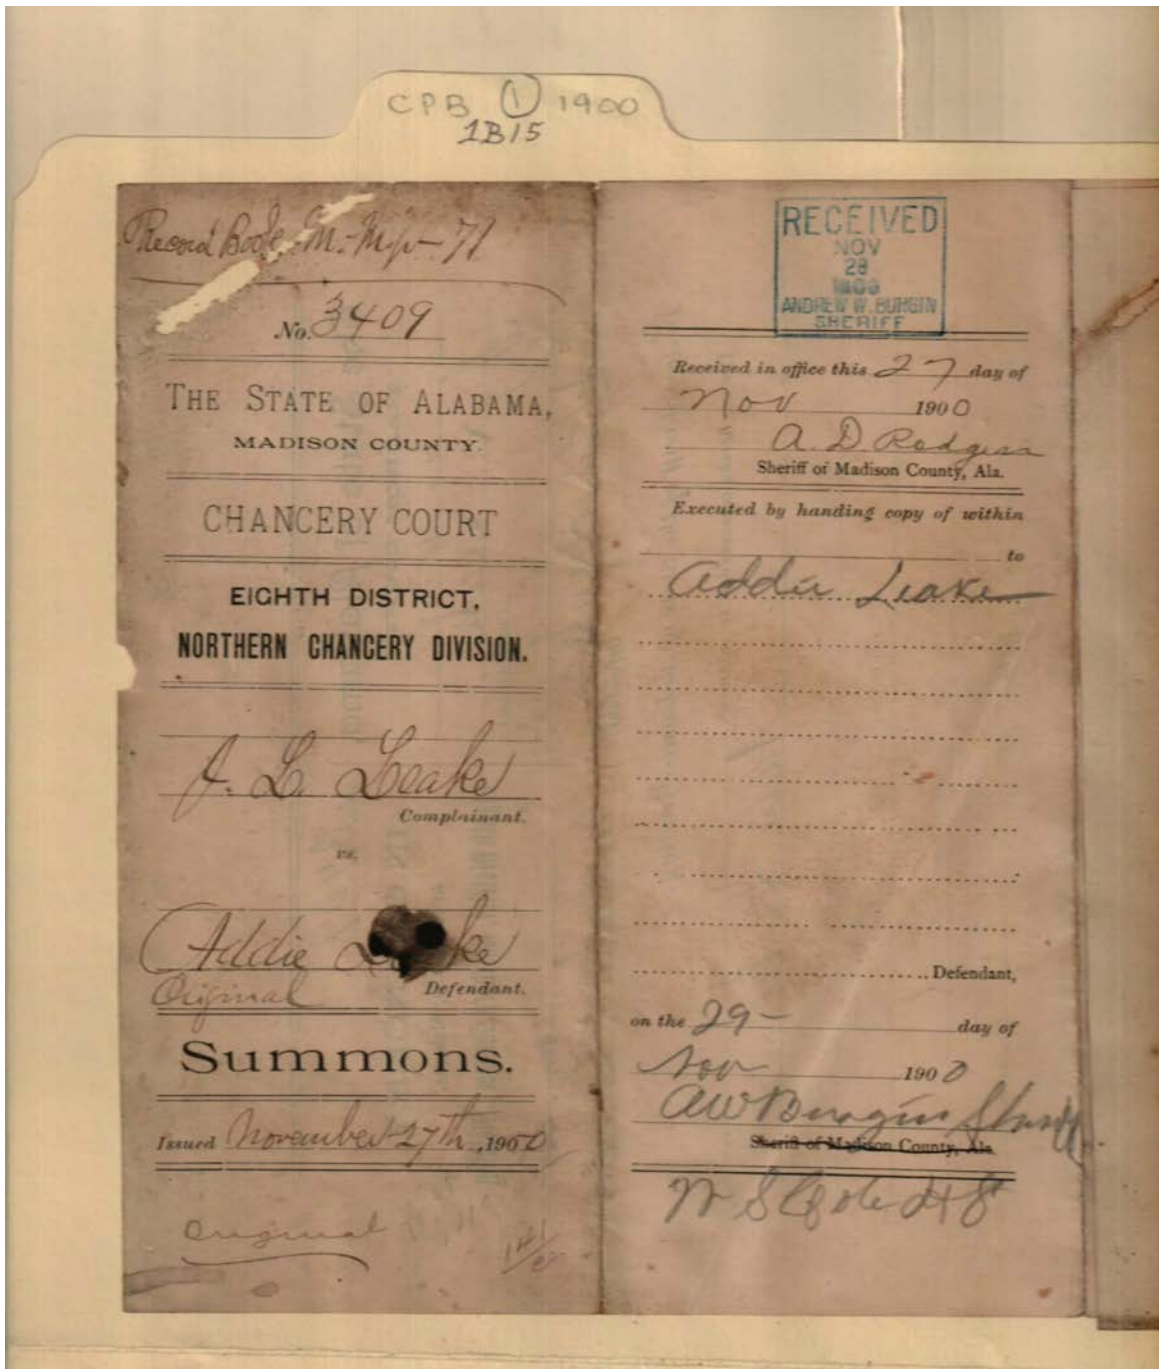 CPB ① 1900
1B15
Record Book M. M. p 71
No. 3409
THE STATE OF ALABAMA,
MADISON COUNTY.
CHANCERY COURT
EIGHTH DISTRICT,
NORTHERN CHANCERY DIVISION.
J. L. Leake
Complainant.
vs.
Addie L ke
Original
Defendant.
Summons.
Issued November 27th, 1900
Original
RECEIVED
NOV
28
ANDREW W. BURGIN
SHERIFF
Received in office this 27 day of
Nov 1900
A. D. Rodgers
Sheriff of Madison County, Ala.
Executed by handing copy of within
to
Addie Leake
Defendant,
on the 29- day of
Nov 1900
AW Burgin Sheriff
Sheriff of Madison County, Ala.